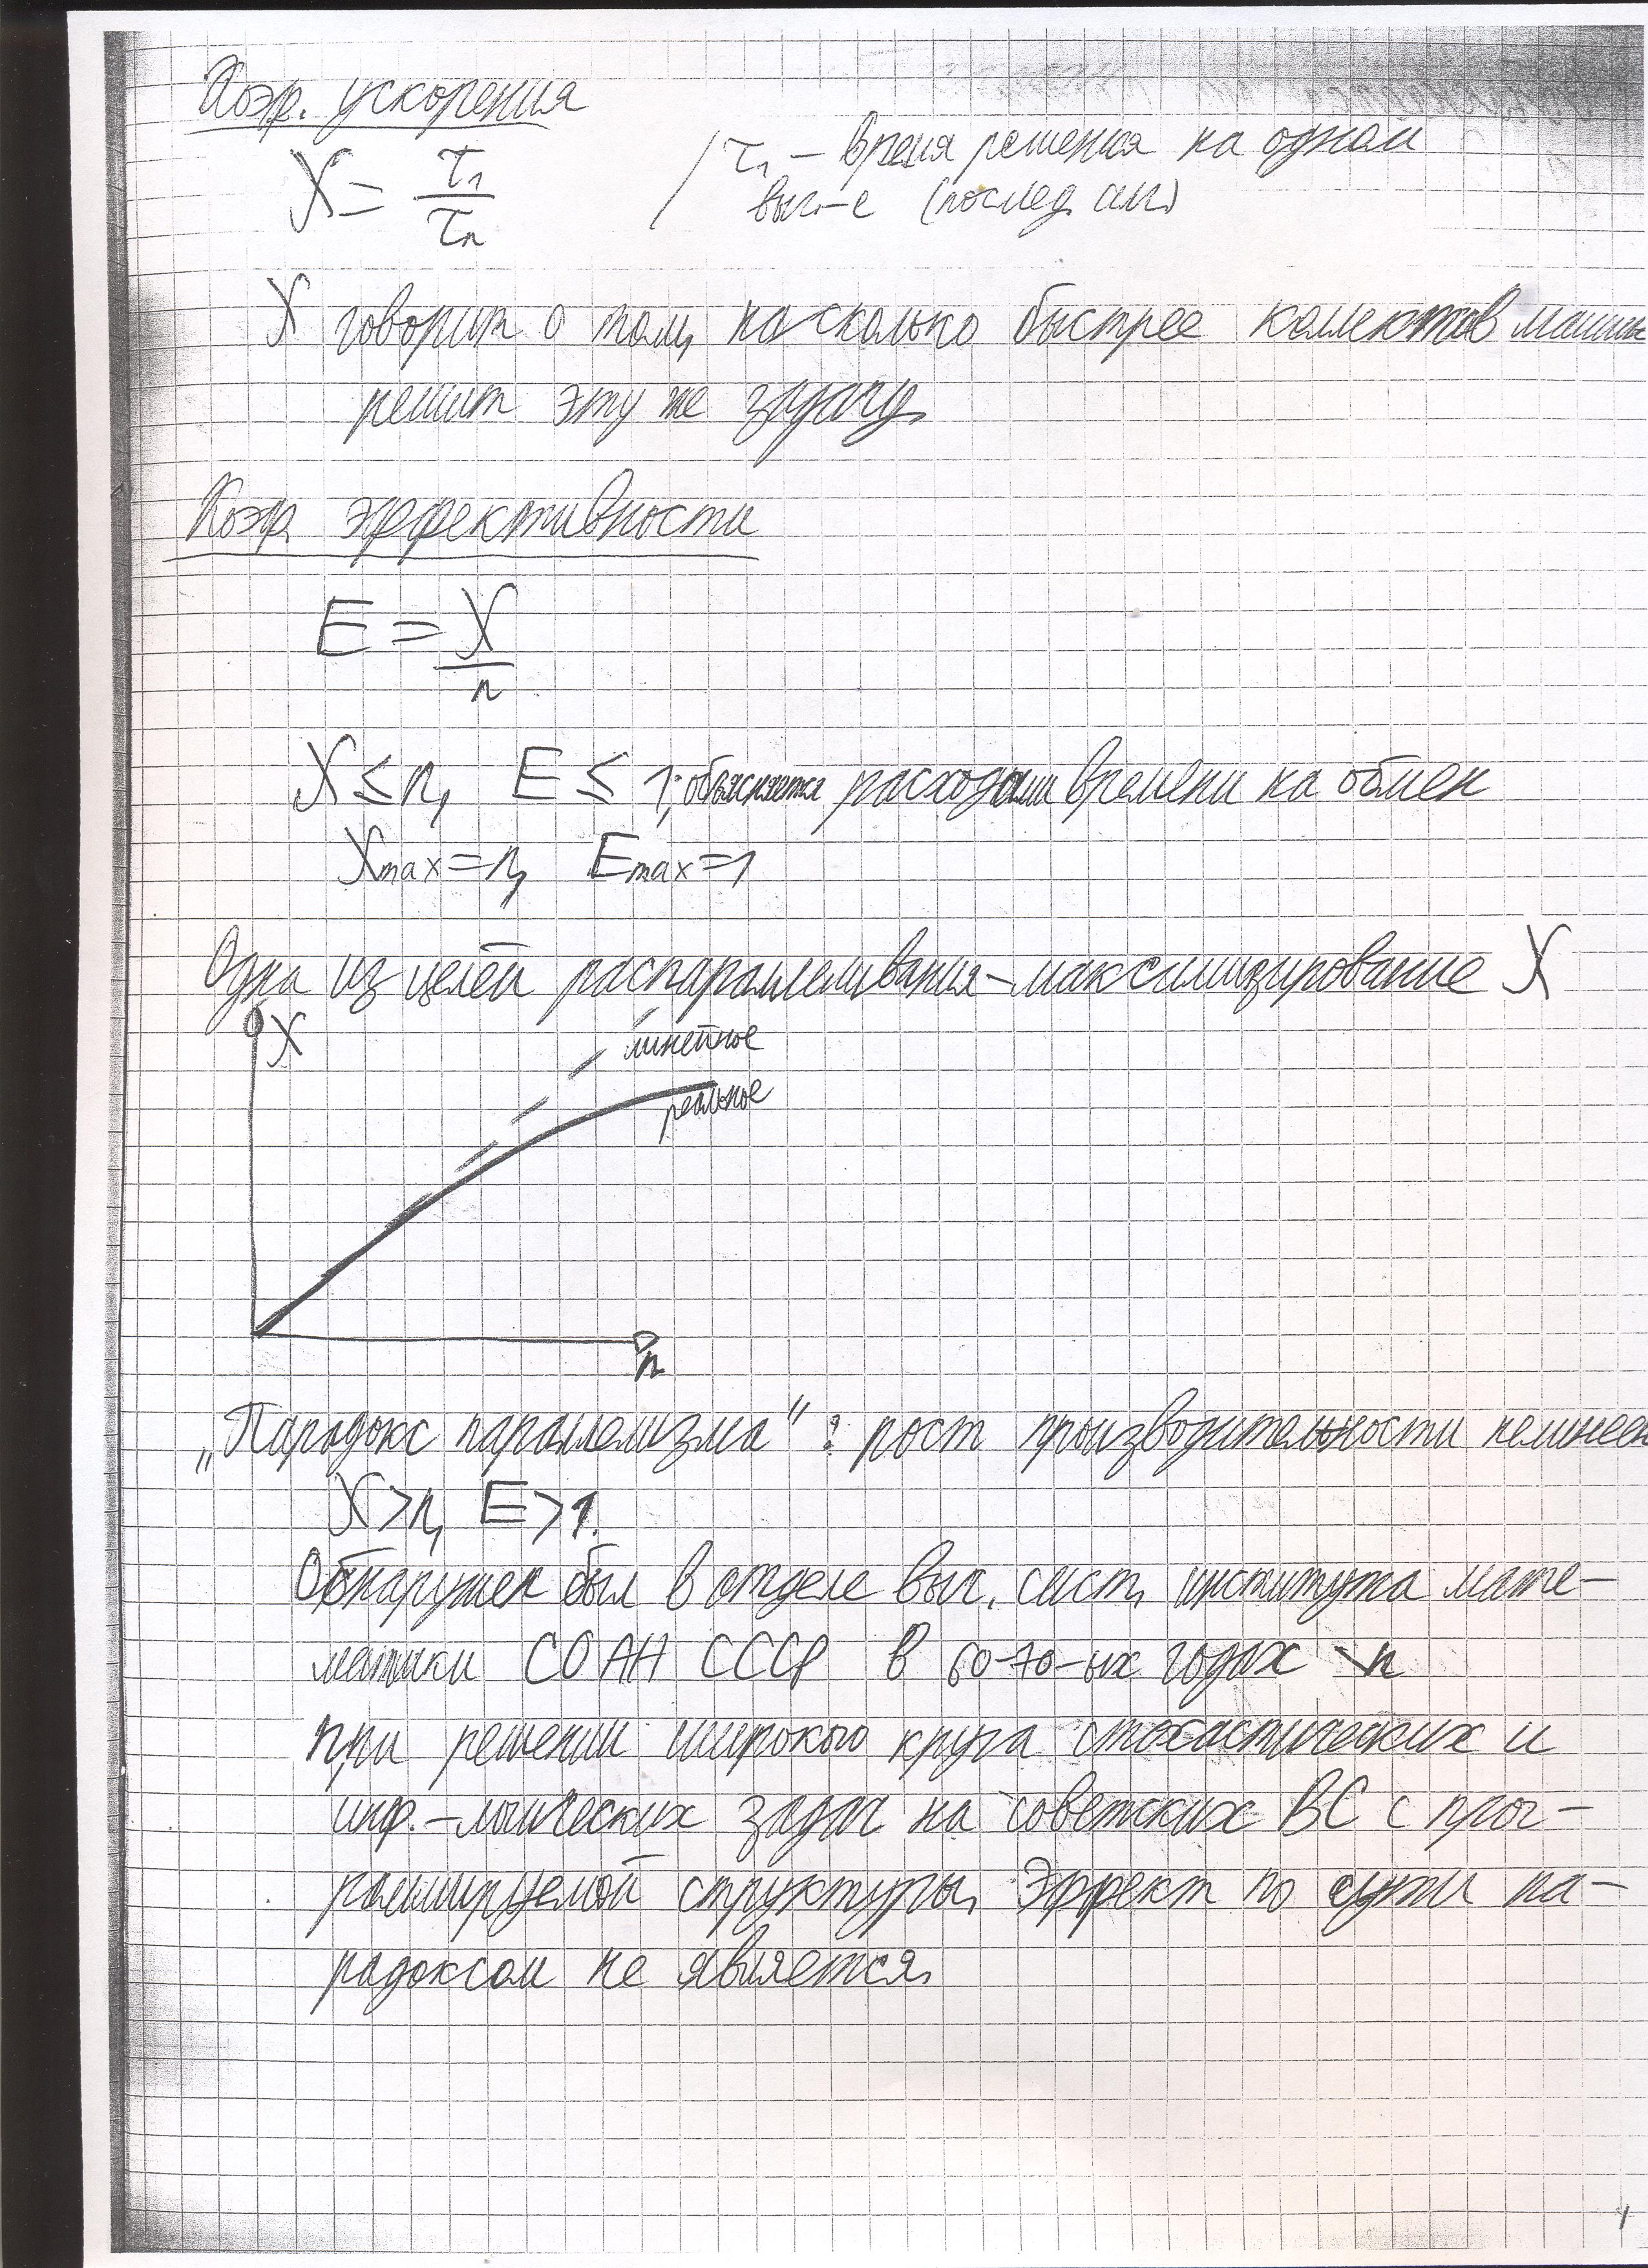 Коэф. ускорения
X = τ₁/τₙ / τ₁ – время решения на одном
выч-е (послед. алг.)
X говорит о том, насколько быстрее колектив машин
решит эту же задачу.
Коэф. эффективности
E = X/n
X ≤ n, E ≤ 1; объясняется расходами времени на обмен
Xmax = n, Emax = 1
Одна из целей распараллеливания – максимизирование X
X
линейное
реальное
n
„Парадокс параллелизма“: рост производительности нелинеен
X > n, E > 1.
Обнаружен был в отделе выч. сист. института мате-
матики СО АН СССР в 60-70-ых годах
при решении широкого круга стохастических и
инф.-логических задач на советских ВС с прог-
раммируемой структуры. Эффект по сути па-
радоксом не является.